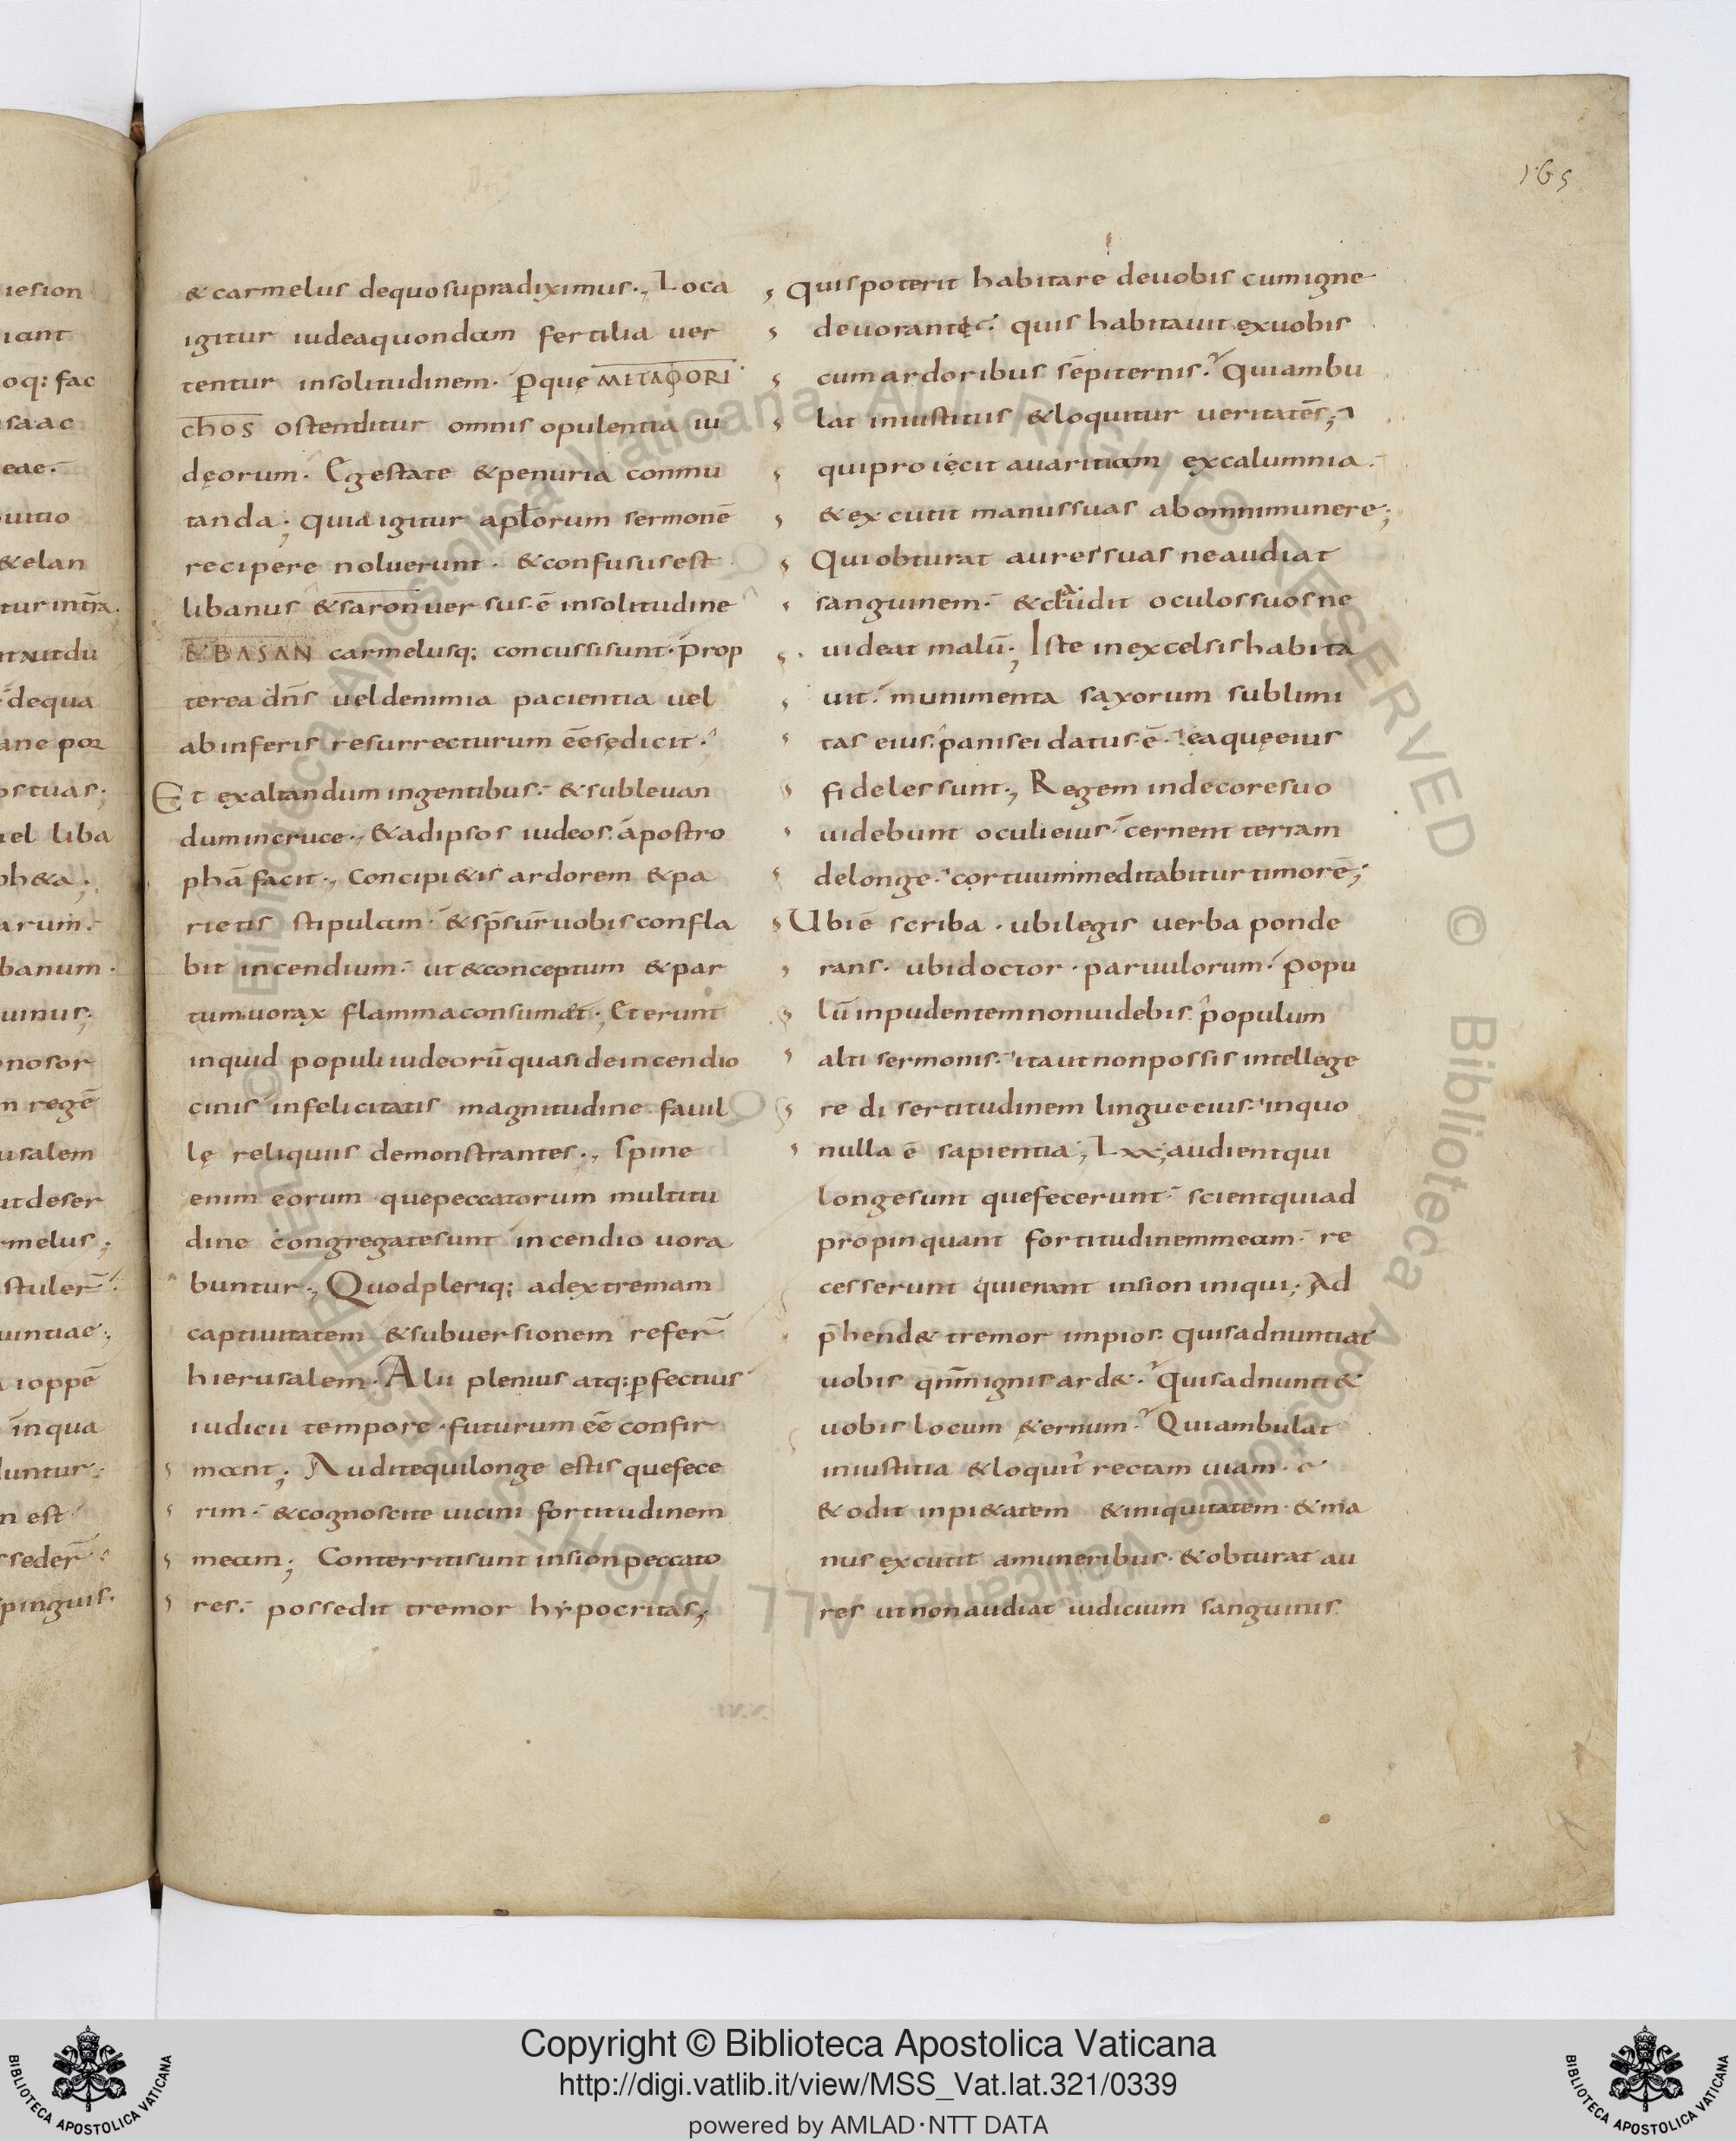 165
& carmelus dequosupradiximus., Loca
igitur iudeaquondam fertilia uer
tentur insolitudinem· p̱quę MITAΦORI
chos ostenditur omnis opulentia iu
dęorum· Egestate &penuria conmu
tanda; quia igitur apłorum sermonē
recipere noluerunt· &confususest
libanus &saronuersus·ē insolitudine
&BASAN carmelusq; concussisunt· prop
terea dn̄s ueldenimia pacientia uel
abinferis resurrecturum ēēsędicit·
Et exaltandumingentibus· &subleuan
dumincruce., &adipsos iudeos· apostro
phā facit., Concipi&is ardorem &pa
rietis stipulam· &sp̄sur̄uobisconfla
bit incendium· ut&conceptum &par
tumuorax flammaconsumat; Et erunt
inquid populiiudeorūquasideincendio
cinis infelicitatis magnitudine fauil
lę reliquiis demonstrantes., Spine
enim eorum quepeccatorum multitu
dine congregatesunt incendio uora
buntur., Quodpleriq; adextremam
captiuitatem &subuersionem refer̄
hierusalem· Alii plenius atq;p̱fectius
iudicii tempore· futurum ēē confir
mant; Auditequilonge estis quefece
rim· &cognoscite uicini fortitudinem
meam; Conterritisunt insionpeccato
res· possedit tremor hẏpocritas;
quispoterit habitare deuobis cumigne
deuorante· quis habitauit exuobis
cumardoribus sēpiternis? Quiambu
lat iniustitiis &loquitur ueritatēs;
quiproiecit auaritiam excalumnia·
&excutit manussuas abomnimunere;
Quiobturat auressuas neaudiat
sanguinem· &claudit oculossuosne
uideat malū; Iste inexcelsishabita
uit· munimenta saxorum sublimi
tas eius· panisei datus·ē· eaquęeius
fidelessunt., Regem indecoresuo
uidebunt oculieius· cernent terram
delonge· cortuummeditabiturtimorē;
Ubiē scriba· ubilegis uerba ponde
rans· ubidoctor· paruulorum· popu
lū inpudentemnonuidebis· populum
alti sermonis· itautnonpossis intellege
re disertitudinem lingueeius· inquo
nulla ē sapientia; Lxx; audientqui
longesunt quefecerunt· scientquiad
propinquant fortitudinemmeam· re
cesserunt quierant insion iniqui; Ad
p̄hend& tremor impios· quisadnuntiat
uobis qnm̄ignisard&· Quisadnunti&
uobis locum &ernum? Quiambulat
iniustitia &loquit̾ rectam uiam·
&odit inpi&atem &iniquitatem· &ma
nus excutit amuneribus· &obturat au
res utnonaudiat iudicium sanguinis·
iesion
iant
oq; fac
saac
eae·
uitio
&elan
tur intra·
dequa
ane por
ostuas;
uel liba
ph&a;
arum·
banum·
uinus;
onosor
m regē
usalem
utdeser
rmelus;
stuler̄
uintiae;
ioppē
inqua
luntur;
n est
sseder̄
pinguis·
Copyright © Biblioteca Apostolica Vaticana
http://digi.vatlib.it/view/MSS_Vat.lat.321/0339
powered by AMLAD·NTT DATA
BIBLIOTECA APOSTOLICA VATICANA
BIBLIOTECA APOSTOLICA VATICANA